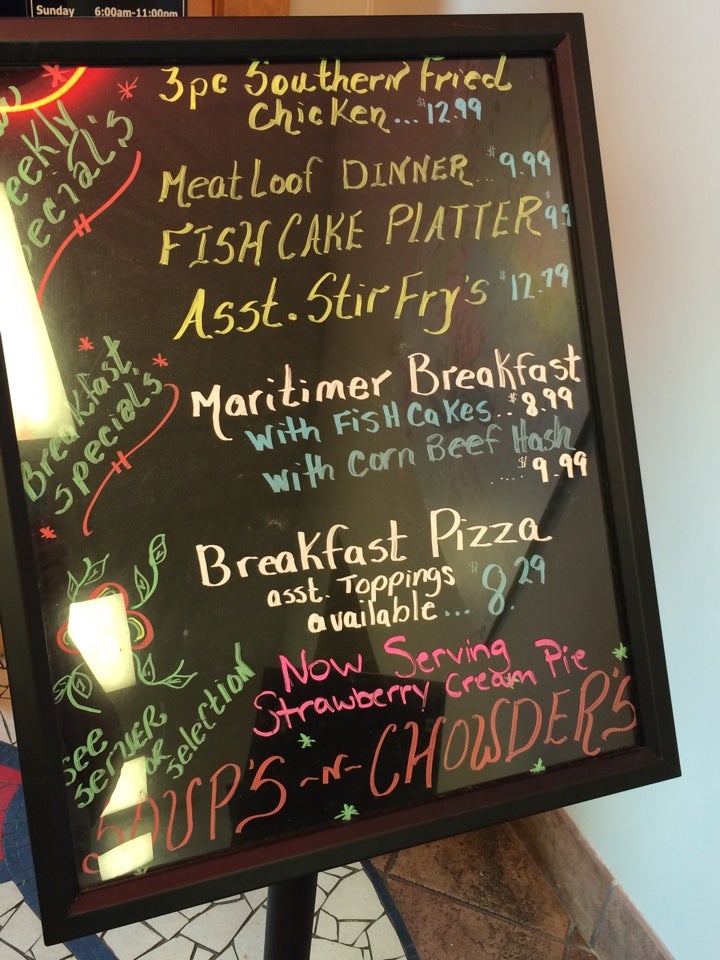 Sunday 6:00am-11:00pm
Weekly
Specials
3pc Southern Fried
Chicken... $12.99
Meat Loof DINNER.. $9.99
FISH CAKE PLATTER
Asst. Stir Fry's $12.79
Breakfast
Specials
Maritimer Breakfast
with FisH Cakes.. $8.99
with Corn Beef Hash
.... $9.99
Breakfast Pizza
asst. Toppings
available... $8.29
Now Serving
Strawberry Cream Pie
See
Server
For
selection
SOUP'S -N- CHOWDER'S